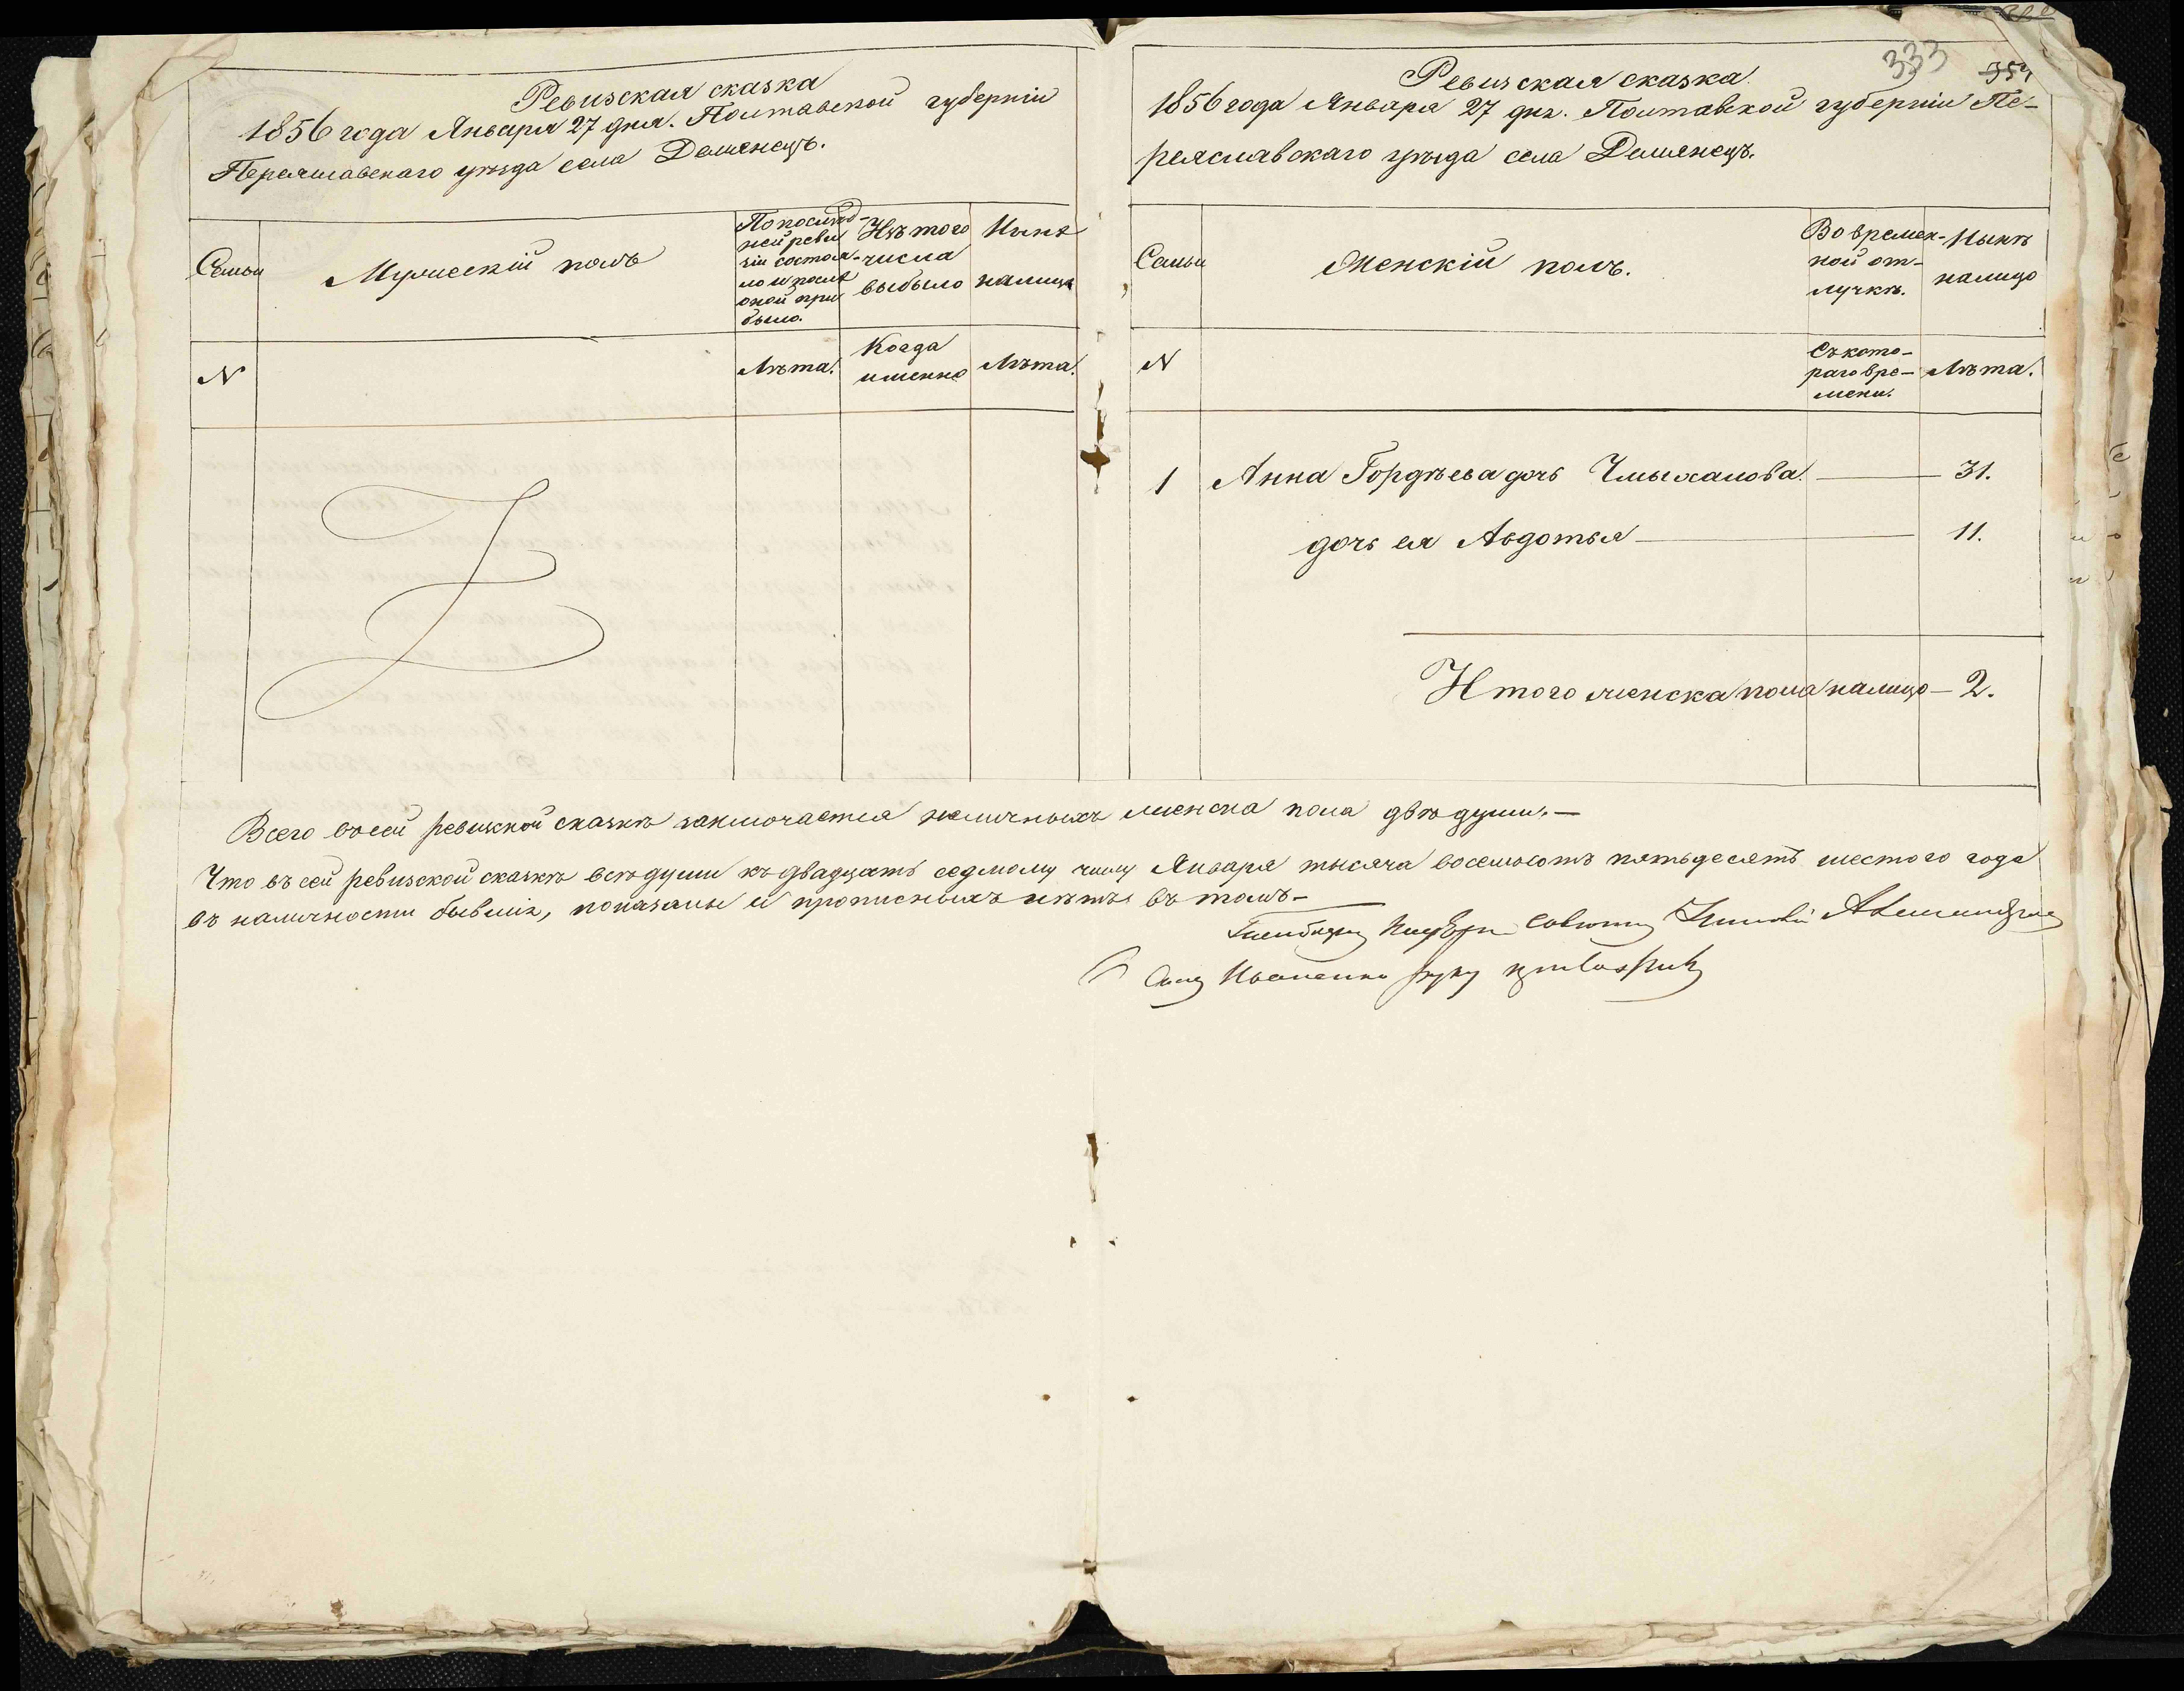 Ревизская сказка
1856 года Января 27 дня. Полтавской губерніи
Переяславскаго уѣзда села Демянецъ.
Семьи
Мужескій полъ
По послѣд-
ней реви
зіи состоя-
ло и послѣ
оной при
было.
Изъ того
числа
выбыло
Нынѣ
налицо
N
Лѣта.
Когда
именно
Лѣта.
333
353
Ревизская сказка
1856 года Января 27 дня. Полтавской губерніи Пе-
реяславскаго уѣзда села Демянецъ.
Семьи
Женскій полъ.
Во времен-
ной от-
лучкѣ.
Нынѣ
налицо
N
Съ кото-
раго вре-
мени.
Лѣта.
1 Анна Гордѣева дочь Чмыхалова. — 31.
дочь ея Авдотья — 11.
Итого женска пола налицо — 2.
Всего въ сей ревизской сказкѣ заключается наличныхъ женска пола двѣ души. —
Что въ сей ревизской сказкѣ всѣ души къ двадцать седмому числу Января тысяча восемьсотъ пятьдесятъ шестого года
въ наличности бывшія, показаны и прописныхъ нѣтъ въ томъ —
руку приложилъ